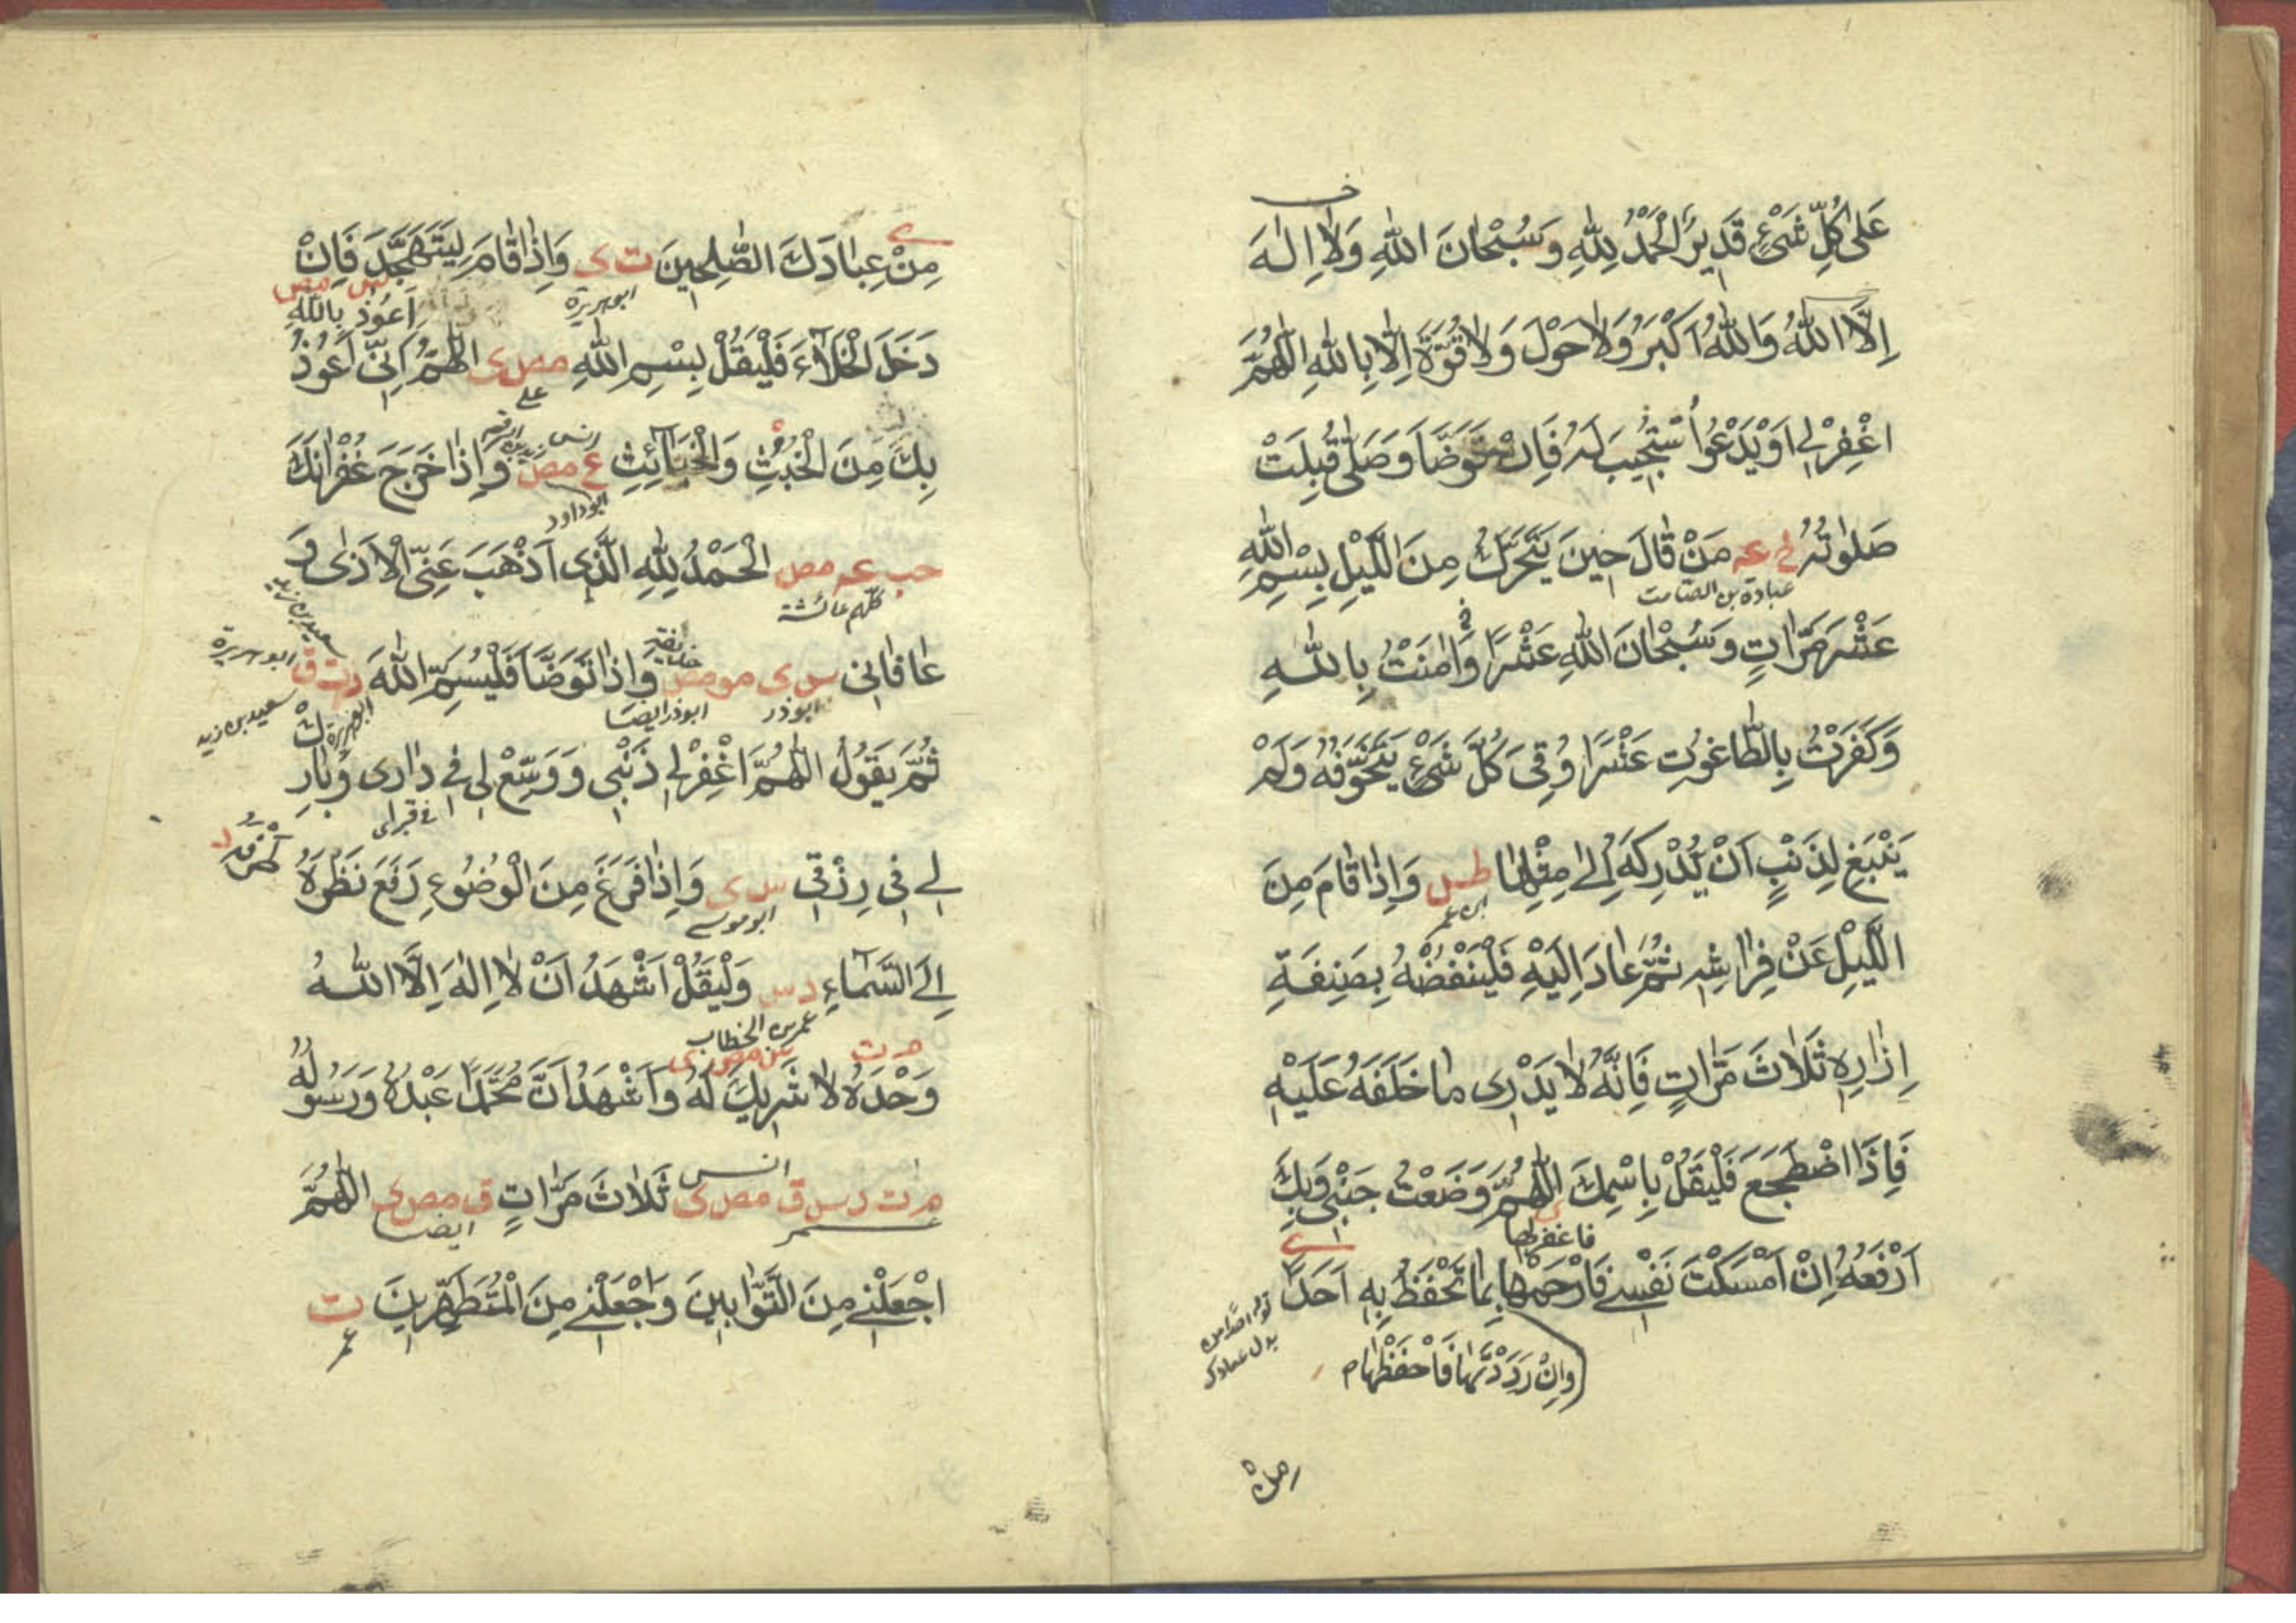 عَلٰى كُلِّ شَىْءٍ قَدِيرٌ اَلْحَمْدُ لِلّٰهِ وَسُبْحَانَ اللّٰهِ وَلَا اِلٰهَ
اِلَّا اللّٰهُ وَاللّٰهُ اَكْبَرُ وَلَا حَوْلَ وَلَا قُوَّةَ اِلَّا بِاللّٰهِ اَللّٰهُمَّ
اغْفِرْلِى اَوْ يَدْعُوا اُسْتُجِيبَ لَهُ فَاِنْ تَوَضَّأَ وَصَلّٰى قُبِلَتْ
صَلٰوتُهُ خ عه مَنْ قَالَ حِينَ يَتَحَرَّكُ مِنَ اللَّيْلِ بِسْمِ اللّٰهِ
عبادة بن الصامت
عَشْرَ مَرَّاتٍ وَسُبْحَانَ اللّٰهِ عَشْرًا وَاٰمَنْتُ بِاللّٰهِ
وَكَفَرْتُ بِالطَّاغُوتِ عَشْرًا وُقِىَ كُلَّ شَىْءٍ يَتَخَوَّفُهُ وَلَمْ
يَنْبَغِ لِذَنْبٍ اَنْ يُدْرِكَهُ اِلٰى مِثْلِهَا طس وَاِذَا قَامَ مِنَ
ابن عمر
اللَّيْلِ عَنْ فِرَاشِهِ ثُمَّ عَادَ اِلَيْهِ فَلْيَنْفُضْهُ بِصَنِفَةِ
اِزَارِهِ ثَلَاثَ مَرَّاتٍ فَاِنَّهُ لَا يَدْرِى مَا خَلَفَهُ عَلَيْهِ
فَاِذَا اضْطَجَعَ فَلْيَقُلْ بِاسْمِكَ اللّٰهُمَّ وَضَعْتُ جَنْبِى وَبِكَ
فاغفرلها
اَرْفَعُهُ اِنْ اَمْسَكْتَ نَفْسِى فَارْحَمْهَا بِمَا تَحْفَظُ بِهِ اَحَدًا
وَاِنْ رَدَدْتَهَا فَاحْفَظْهَا م
مِنْ
مِنْ عِبَادِكَ الصّٰلِحِينَ ت ى وَاِذَا قَامَ لِيَتَهَجَّدَ فَاِنْ
ابوهريرة
مص
اَعُوذُ بِاللّٰهِ
دَخَلَ الْخَلَاءَ فَلْيَقُلْ بِسْمِ اللّٰهِ مص ى اَللّٰهُمَّ اِنِّى اَعُوذُ
على
انس
بِكَ مِنَ الْخُبُثِ وَالْخَبَائِثِ ع مص وَاِذَا خَرَجَ غُفْرَانَكَ
ابوداود
حب عه مص اَلْحَمْدُ لِلّٰهِ الَّذِى اَذْهَبَ عَنِّى الْاَذٰى وَ
كلهم عائشة
عَافَانِى س ى مو مص وَاِذَا تَوَضَّأَ فَلْيُسَمِّ اللّٰهَ د ت ق
ابوذر ابوذر ايضا
ابوهريرة
سعيد بن زيد
ثُمَّ يَقُولُ اَللّٰهُمَّ اغْفِرْلِى ذَنْبِى وَوَسِّعْ لِى فِى دَارِى وَبَارِكْ
لِى فِى رِزْقِى س ى وَاِذَا فَرَغَ مِنَ الْوُضُوءِ رَفَعَ نَظَرَهُ
ابو موسى
طَرْفَهُ د
اِلَى السَّمَاءِ د س وَلْيَقُلْ اَشْهَدُ اَنْ لَا اِلٰهَ اِلَّا اللّٰهُ
عمر بن الخطاب
وَحْدَهُ لَا شَرِيكَ لَهُ وَاَشْهَدُ اَنَّ مُحَمَّدًا عَبْدُهُ وَرَسُولُهُ
م ت د س ق مص ى ثَلَاثَ مَرَّاتٍ ق مص ى اَللّٰهُمَّ
انس
ايضا
اجْعَلْنِى مِنَ التَّوَّابِينَ وَاجْعَلْنِى مِنَ الْمُتَطَهِّرِينَ ت
عمر